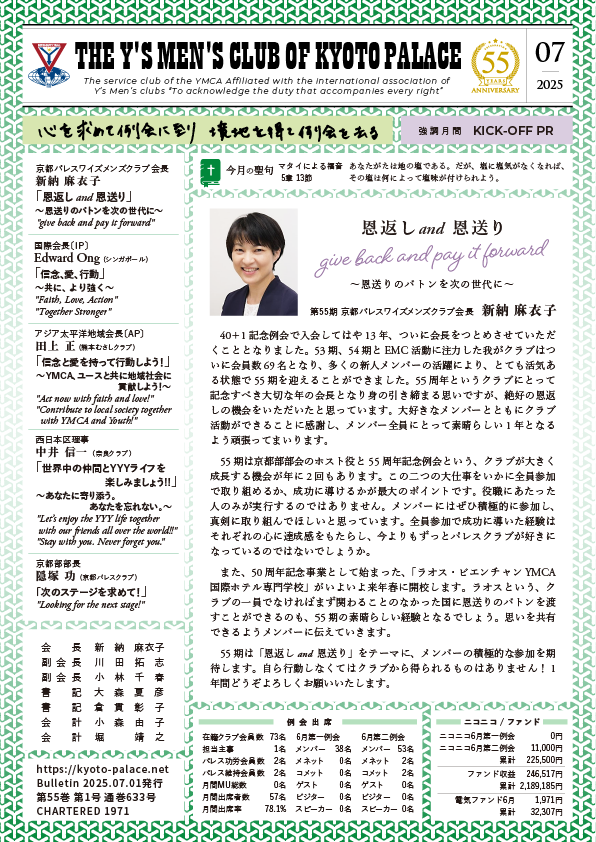 THE Y'S MEN'S CLUB OF KYOTO PALACE
The service club of the YMCA Affiliated with the international association of
Y's Men's clubs "To acknowledge the duty that accompanies every right"
55
YEARS
ANNIVERSARY
07
2025
心を求めて例会に到り 境地を得て例会を去る
強調月間 KICK-OFF PR
京都パレスワイズメンズクラブ会長
新納 麻衣子
「恩返し and 恩送り」
～恩送りのバトンを次の世代に～
"give back and pay it forward"
国際会長〔IP〕
Edward Ong（シンガポール）
「信念、愛、行動」
～共に、より強く～
"Faith, Love, Action"
"Together Stronger"
アジア太平洋地域会長〔AP〕
田上 正（熊本むさしクラブ）
「信念と愛を持って行動しよう！」
～YMCA、ユースと共に地域社会に
貢献しよう！～
"Act now with faith and love!"
"Contribute to local society together
with YMCA and Youth!"
西日本区理事
中井 信一（奈良クラブ）
「世界中の仲間とYYYライフを
楽しみましょう!!」
～あなたに寄り添う。
あなたを忘れない。～
"Let's enjoy the YYY life together
with our friends all over the world!!"
"Stay with you. Never forget you."
京都部部長
隠塚 功（京都パレスクラブ）
「次のステージを求めて！」
"Looking for the next stage!"
会長 新納 麻衣子
副会長 川田 拓志
副会長 小林 千春
書記 大森 夏彦
書記 倉貫 彰子
会計 小森 由子
会計 堀 靖之
https://kyoto-palace.net
Bulletin 2025.07.01発行
第55巻 第1号 通巻633号
CHARTERED 1971
今月の聖句
マタイによる福音
5章 13節
あなたがたは地の塩である。だが、塩に塩気がなくなれば、
その塩は何によって塩味が付けられよう。
恩返し and 恩送り
give back and pay it forward
～恩送りのバトンを次の世代に～
第55期 京都パレスワイズメンズクラブ会長 新納 麻衣子
40＋1 記念例会で入会してはや 13 年、ついに会長をつとめさせていただ
くこととなりました。53 期、54 期と EMC 活動に注力した我がクラブはつ
いに会員数 69 名となり、多くの新人メンバーの活躍により、とても活気あ
る状態で 55 期を迎えることができました。55 周年というクラブにとって
記念すべき大切な年の会長となり身の引き締まる思いですが、絶好の恩返
しの機会をいただいたと思っています。大好きなメンバーとともにクラブ
活動ができることに感謝し、メンバー全員にとって素晴らしい 1 年となる
よう頑張ってまいります。
55 期は京都部部会のホスト役と 55 周年記念例会という、クラブが大きく
成長する機会が年に 2 回もあります。この二つの大仕事をいかに全員参加
で取り組めるか、成功に導けるかが最大のポイントです。役職にあたった
人のみが実行するのではありません。メンバーにはぜひ積極的に参加し、
真剣に取り組んでほしいと思っています。全員参加で成功に導いた経験は
それぞれの心に達成感をもたらし、今よりもずっとパレスクラブが好きに
なっているのではないでしょうか。
また、50 周年記念事業として始まった、「ラオス・ビエンチャン YMCA
国際ホテル専門学校」がいよいよ来年春に開校します。ラオスという、ク
ラブの一員でなければまず関わることのなかった国に恩送りのバトンを渡
すことができるのも、55 期の素晴らしい経験となるでしょう。思いを共有
できるようメンバーに伝えていきます。
55 期は「恩返し and 恩送り」をテーマに、メンバーの積極的な参加を期
待します。自ら行動しなくてはクラブから得られるものはありません！ 1
年間どうぞよろしくお願いいたします。
例会出席
在籍クラブ会員数 73名 6月第一例会 6月第二例会
担当主事 1名 メンバー 38名 メンバー 53名
パレス功労会員数 2名 メネット 0名 メネット 2名
パレス維持会員数 2名 コメット 0名 コメット 2名
月間MU総数 0名 ゲスト 0名 ゲスト 0名
月間出席者数 57名 ビジター 0名 ビジター 0名
月間出席率 78.1% スピーカー 0名 スピーカー 0名
ニコニコ / ファンド
ニコニコ6月第一例会 0円
ニコニコ6月第二例会 11,000円
累計 225,500円
ファンド収益 246,517円
累計 2,189,185円
電気ファンド6月 1,971円
累計 32,307円